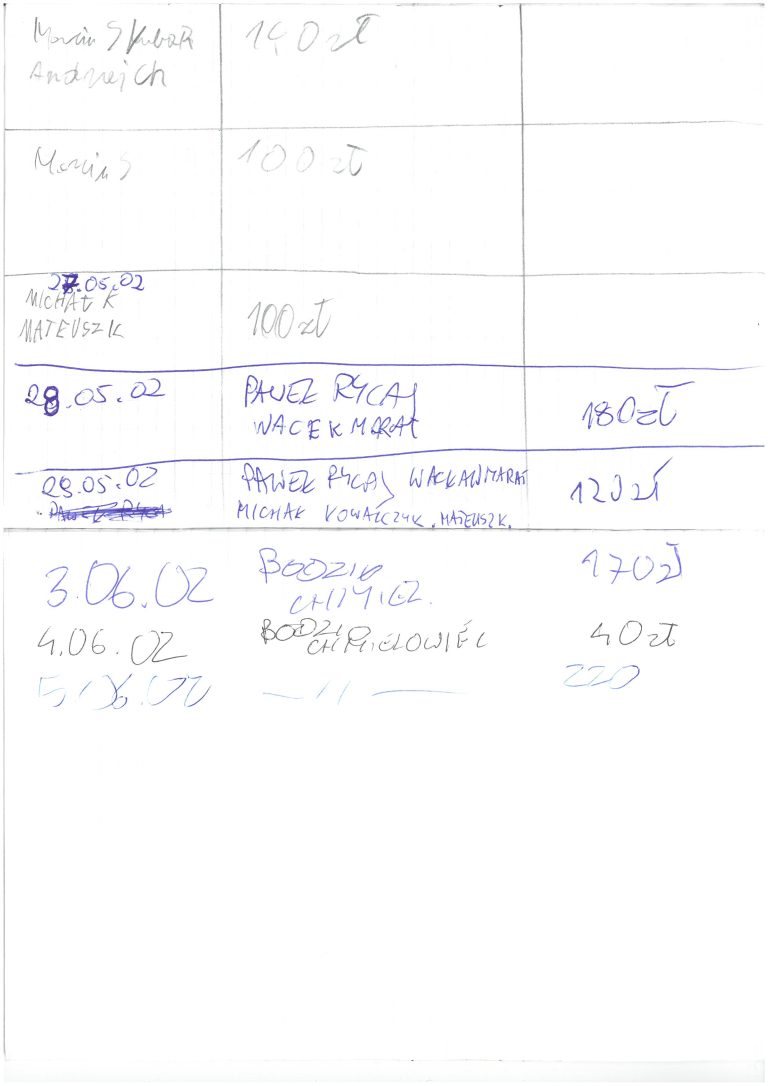 Marcin Skubak 140 zł
Andrzej Ch
Marcin S 100 zł
27.05.02
MICHAŁ K
MATEUSZ K 100 zł
28.05.02 PAWEŁ RYCAJ
WACEK MARAT 180 zł
29.05.02 PAWEŁ RYCAJ WACŁAW MARAT 120 zł
MICHAŁ KOWALCZYK. MATEUSZ K.
3.06.02 BODZIO 170 zł
CHMIEL.
4.06.02 BODZIO 40 zł
CHMIELOWIEC
5.06.02 —//— 220